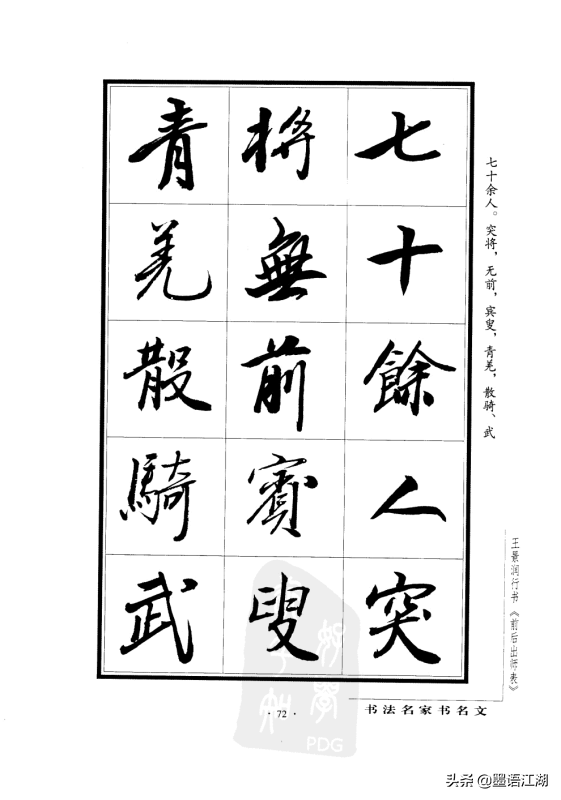 七十餘人突
將無前賓叟
青羌散騎武
七十余人。突将，无前，宾叟，青羌，散骑、武
王景润行书《前后出师表》
书法名家书名文
· 72 ·
PDG
头条 @墨语江湖